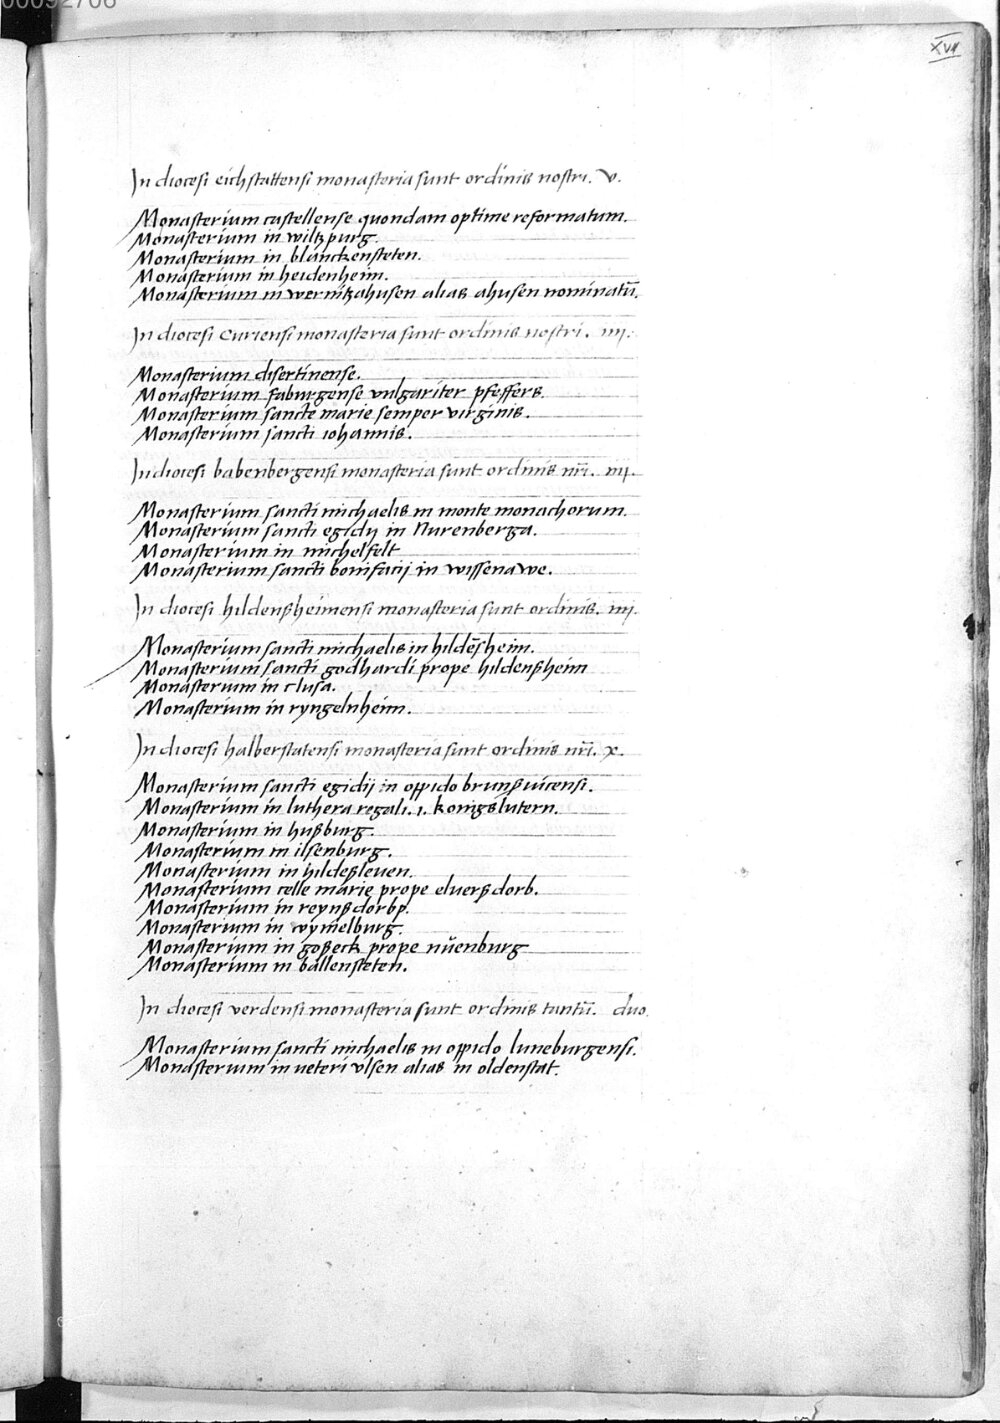 00092706
XVII
In diocesi eichstattensi monasteria sunt ordinis nostri. v.
Monasterium castellense quondam optime reformatum.
Monasterium in wiltzpurg.
Monasterium in blanckensteten.
Monasterium in heidenheim.
Monasterium in wernitzahusen alias ahusen nominatū.
In diocesi Curiensi monasteria sunt ordinis nostri. iiij.
Monasterium disertinense.
Monasterium faburgense vulgariter pfeffers
Monasterium sancte marie semper virginis.
Monasterium sancti iohannis.
In diocesi babenbergensi monasteria sunt ordinis nrī. iiij.
Monasterium sancti michaelis in monte monachorum.
Monasterium sancti egidij in Nurenberga.
Monasterium in michelfelt
Monasterium sancti bonifacij in wissenawe.
In diocesi hildenßheimensi monasteria sunt ordinis. iiij.
Monasterium sancti michaelis in hildēsheim.
Monasterium sancti godhardi prope hildenßheim
Monasterium in clusa.
Monasterium in ryngelnheim.
In diocesi halberstatensi monasteria sunt ordinis nrī. x.
Monasterium sancti egidij in oppido brunßvicensi.
Monasterium in luthera regali. i. konigslutern.
Monasterium in hußburg.
Monasterium in ilsenburg.
Monasterium in hildeßleuen.
Monasterium celle marie prope elverßdorb.
Monasterium in reynßdorbp.
Monasterium in wymelburg.
Monasterium in goßeck prope nŭenburg
Monasterium in ballensteten.
In diocesi verdensi monasteria sunt ordinis tantū. duo.
Monasterium sancti michaelis in oppido luneburgensi.
Monasterium in ueteri vlsen alias in oldenstat.